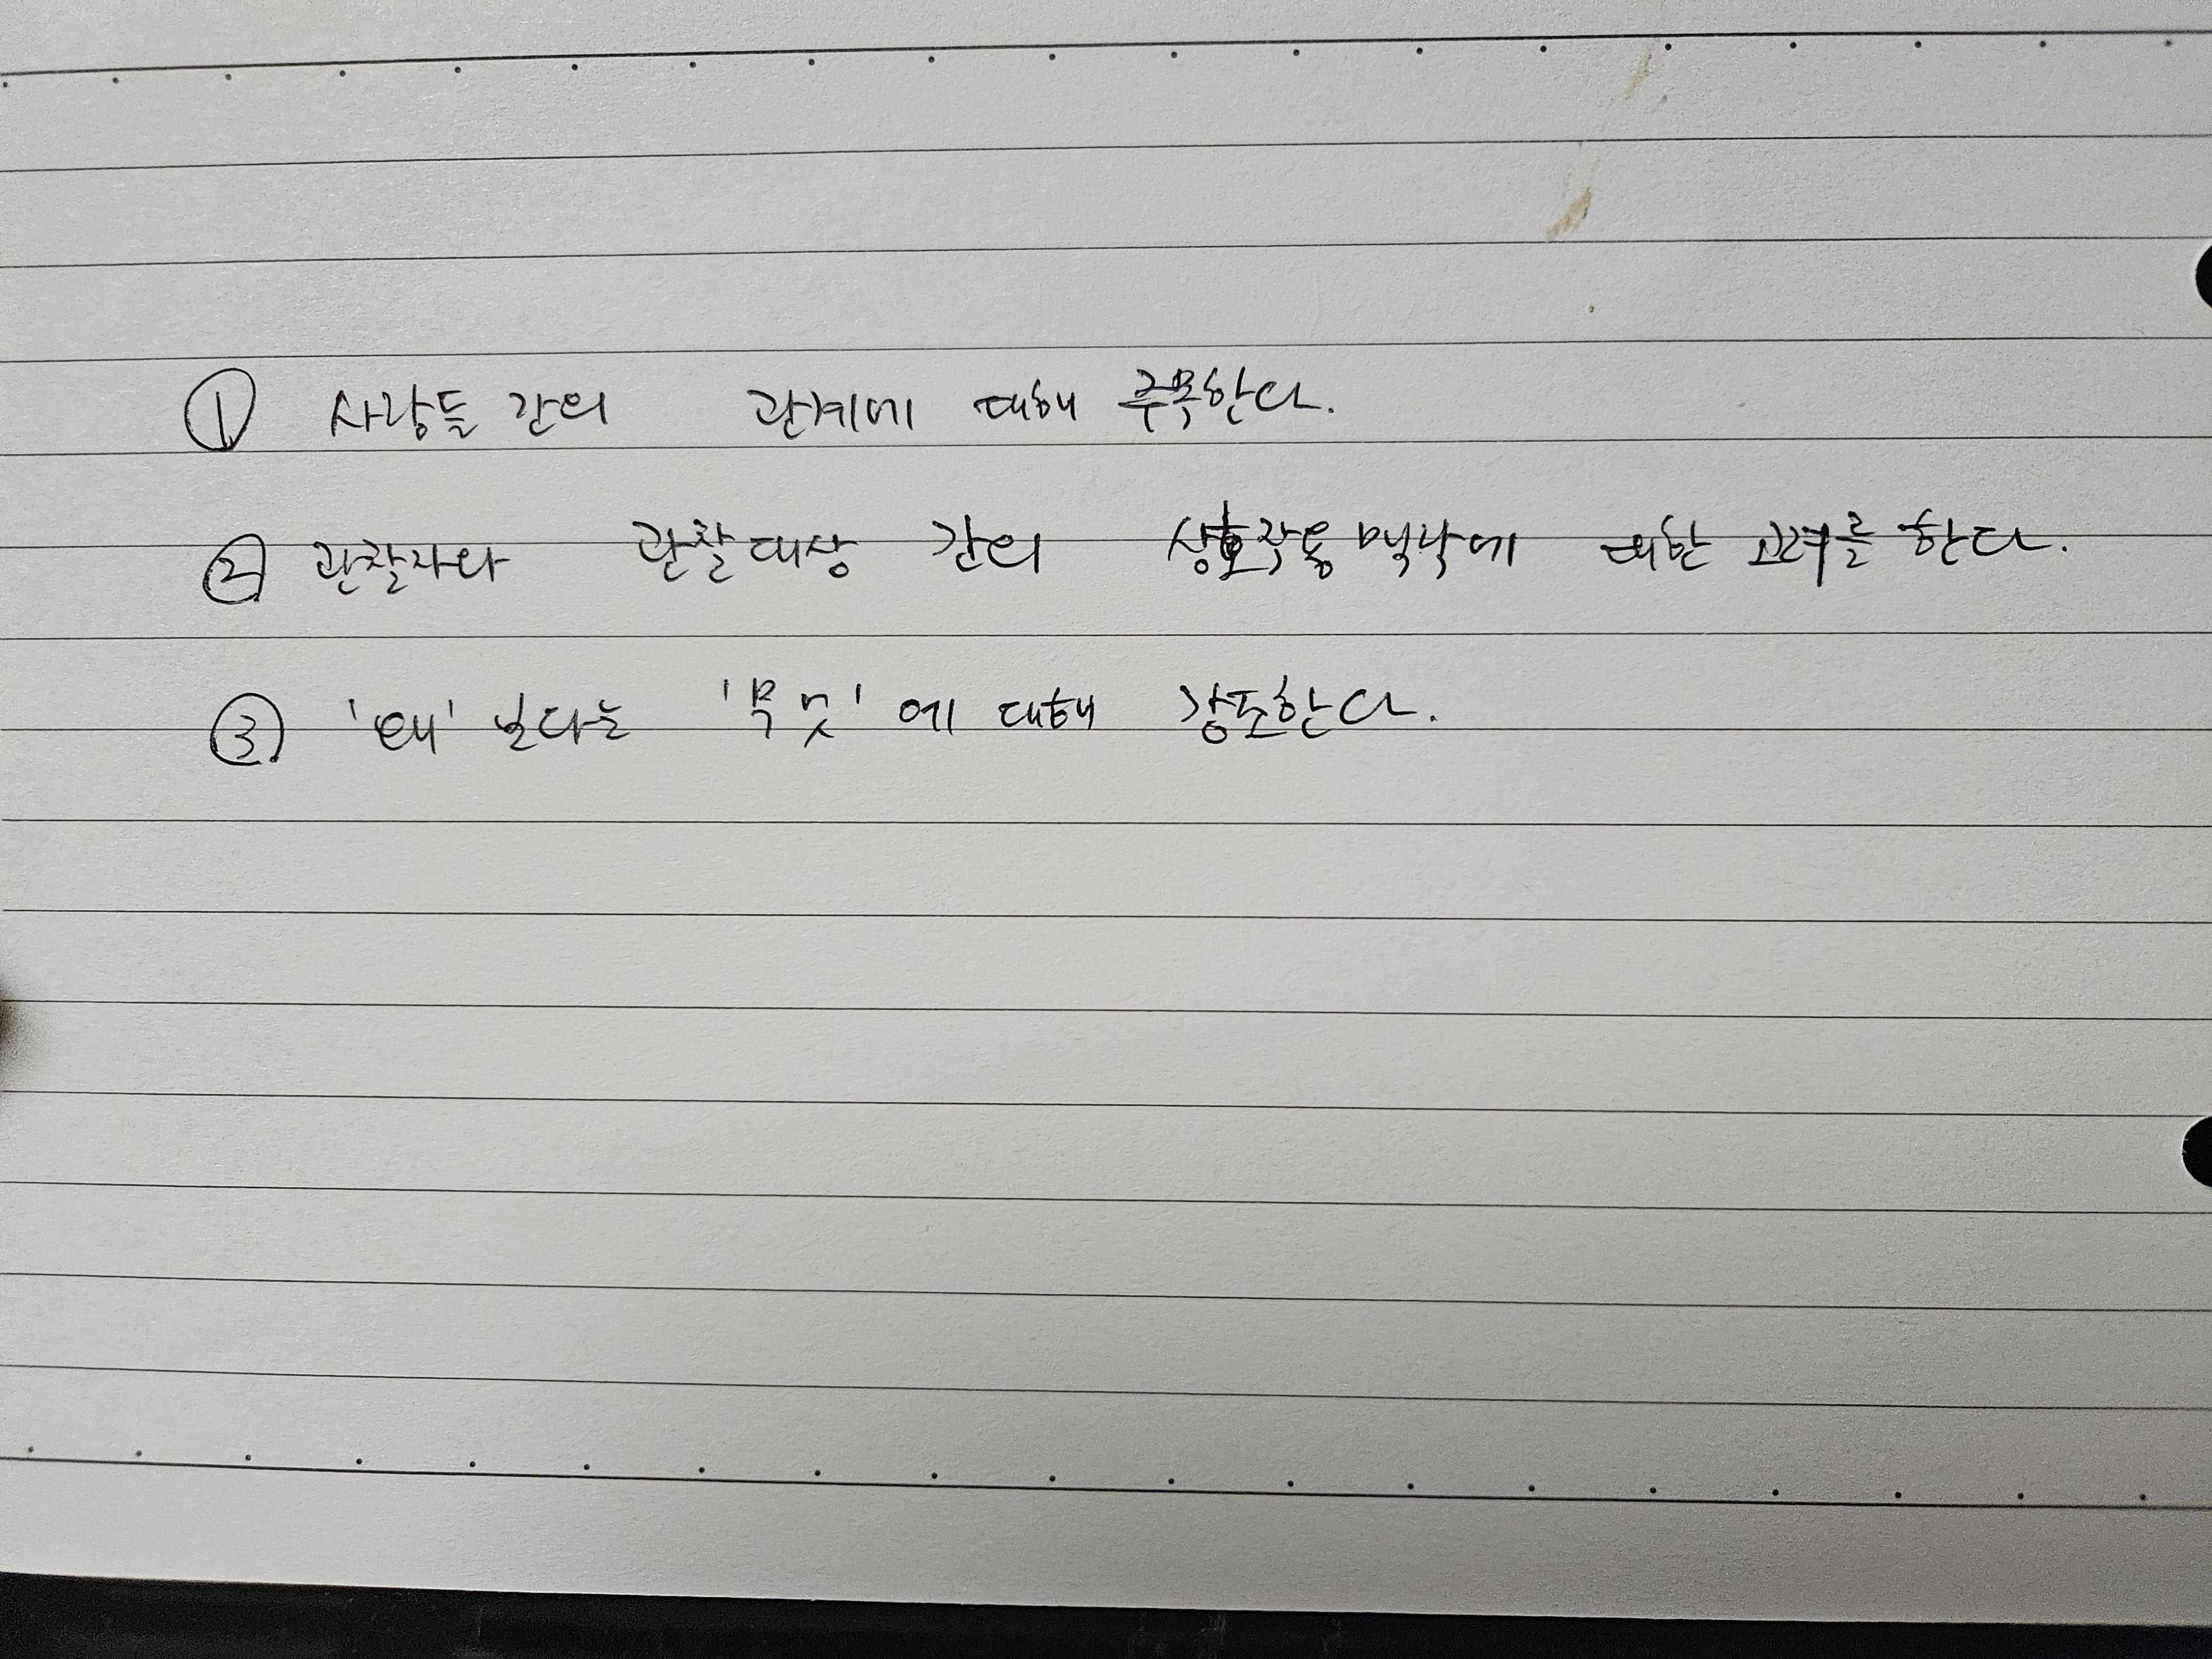 ① 사람들 간의 관계에 대해 주목한다.
② 관찰자와 관찰대상 간의 상호작용 맥락에 대한 고려를 한다.
③ '왜' 보다는 '무엇' 에 대해 강조한다.